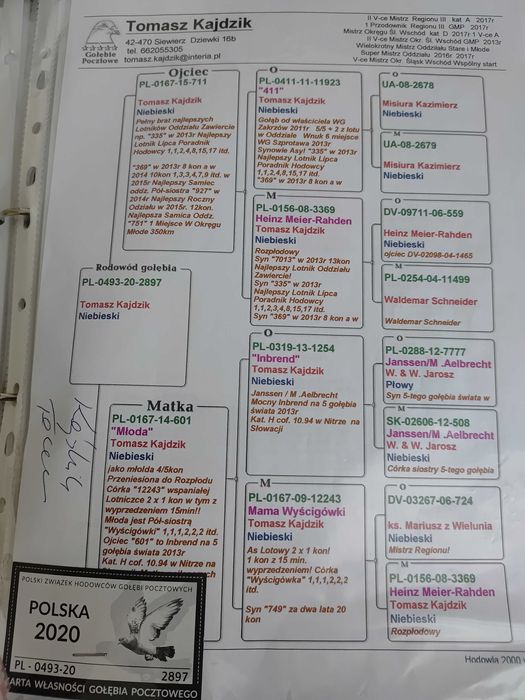 Gołębie
Pocztowe
Tomasz Kajdzik
42-470 Siewierz Dziewki 16b
tel. 662055305
tomasz.kajdzik@interia.pl
II V-ce Mistrz Regionu III kat A 2017r
1 Przodownik Regionu III GMP 2017r
Mistrz Okręgu Śl. Wschód kat D 2017r 1 V-ce A
II V-ce Mistrz Okr. Śl. Wschód GMP 2013r
Wielokrotny Mistrz Oddziału Stare i Młode
Super Mistrz Oddziału 2016r 2017r
V-ce Mistrz Okr. Śląsk Wschód Wspólny start
Rodowód gołębia
PL-0493-20-2897
Tomasz Kajdzik
Niebieski
Ojciec
PL-0167-15-711
Tomasz Kajdzik
Niebieski
Pełny brat najlepszych
Lotników Oddziału Zawiercie
np. "335" w 2013r Najlepszy
Lotnik Lipca Poradnik
Hodowcy 1,1,2,4,8,15,17 itd.
"369" w 2013r 8 kon a w
2014 10kon 1,3,3,4,7,9 itd. w
2015r Najlepszy Samiec
oddz. Pół-siostra "927" w
2014r Najlepszy Roczny
Odziału w 2015r. 12kon.
Najlepsza Samica Oddz.
"751" 1 Miejsce W Okręgu
Młode 350km
Matka
PL-0167-14-601
"Młoda"
Tomasz Kajdzik
Niebieski
jako młolda 4/5kon
Przeniesiona do Rozpłodu
Córka "12243" wspaniałej
Lotniczce 2 x 1 kon w tym z
wyprzedzeniem 15min!!
Młoda jest Pół-siostrą
"Wyścigówki" 1,1,1,2,2,2 itd.
Ojciec "601" to Inbrend na 5
gołębia świata 2013r
Kat. H cof. 10.94 w Nitrze na
O
PL-0411-11-11923
"411"
Tomasz Kajdzik
Niebieski
Gołąb od właściciela WG
Zakrzów 2011r 5/5 + 2 z lotu
w Oddziale Wnuk 6 miejsce
WG Szprotawa 2013r
Synowie Asy! "335" w 2013r
Najlepszy Lotnik Lipca
Poradnik Hodowcy
1,1,2,4,8,15,17 itd.
"369" w 2013r 8 kon a w
M
PL-0156-08-3369
Heinz Meier-Rahden
Tomasz Kajdzik
Niebieski
Rozpłodowy
Syn "7013" w 2013r 13kon
Najlepszy Lotnik Oddziału
Zawiercie!
Syn "335" w 2013r
Najlepszy Lotnik Lipca
Poradnik Hodowcy
1,1,2,3,4,8,15,17 itd.
Syn "369" w 2013r 8 kon a w
O
PL-0319-13-1254
"Inbrend"
Tomasz Kajdzik
Niebieski
Janssen / M .Aelbrecht
Mocny Inbrend na 5 gołębia
świata 2013r
Kat. H cof. 10.94 w Nitrze na
Słowacji
M
PL-0167-09-12243
Mama Wyścigówki
Tomasz Kajdzik
Niebieski
As Lotowy 2 x 1 kon!
1 kon z 15 min.
wyprzedzeniem! Córka
"Wyścigówka" 1,1,1,2,2,2
itd.
Syn "749" za dwa lata 20
kon
O
UA-08-2678
Misiura Kazimierz
Niebieski
M
UA-08-2679
Misiura Kazimierz
Niebieski
O
DV-09711-06-559
Heinz Meier-Rahden
Niebieski
ojciec DV-02098-04-1465
M
PL-0254-04-11499
Waldemar Schneider
Waldemar Schneider
O
PL-0288-12-7777
Janssen/M .Aelbrecht
W. & W. Jarosz
Płowy
Syn 5-tego gołębia świata w
M
SK-02606-12-508
Janssen/M .Aelbrecht
W. & W. Jarosz
Niebieski
Córka siostry 5-tego gołębia
O
DV-03267-06-724
ks. Mariusz z Wielunia
Niebieski
Mistrz Regionu!
M
PL-0156-08-3369
Heinz Meier-Rahden
Tomasz Kajdzik
Niebieski
Rozpłodowy
Hodowla 2000
POLSKI ZWIĄZEK HODOWCÓW GOŁĘBI POCZTOWYCH
POLSKA
2020
PL - 0493-20
2897
KARTA WŁASNOŚCI GOŁĘBIA POCZTOWEGO